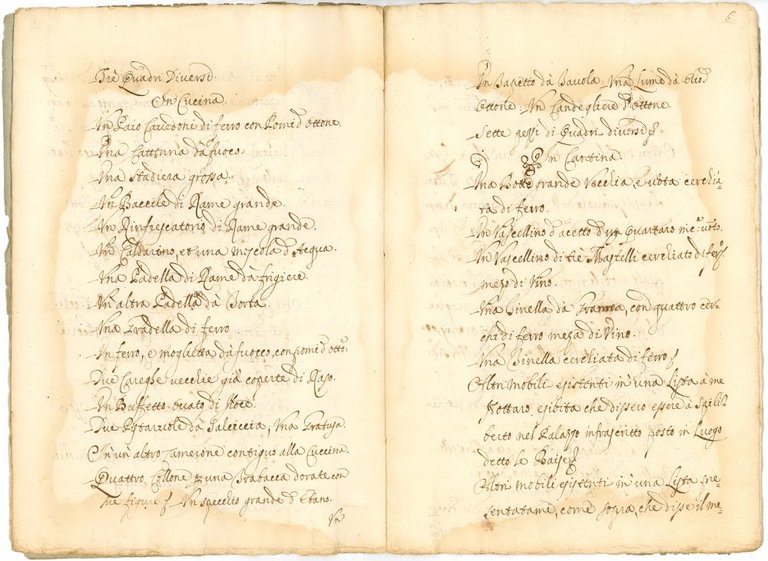 Trè Quadri Diversi.
In Cucina.
Un Paio Cavedoni di ferro con Pomi d'ottone.
Una Cattenna da fuoco.
Una stadiera grossa.
Un Baccile di Rame grande.
Un Rinfrescatorio di Rame grande.
Un Caldarino, et una mescola d'Acqua.
Una Padella di Rame da frigiere.
Un'altra Padella da Torta.
Una Gradella di ferro
Un ferro, e moglietta da fuoco, con pomi d'otto:
Due Careghe vecchie già coperte di Raso.
Un Buffetto ouato di Noce.
Due da Salciccia, Una Gratusa.
In un'altro Camerone contiguo alla Cuccina.
Quattro Collone, et una Trabacca dorate con
sue figure Un specchio grande d'Ebano.
6
Un Tapetto da Tavola. Una Lume da Oglio
d'ottone. Un Candegliere d'ottone.
Sette pezzi di Quadri diversi
In Cantina.
Una Botte grande Vecchia, e vota cerchia-
ta di ferro.
Un Vascellino d'acetto d'un quartaro mezo voto.
Un Vascellino di trè Mastelli cerchiato di ferro
mezo di Vino.
Una Tinella da con quattro cer-
chi di ferro meza di Vino.
Una Tinella cerchiata di ferro
Altri mobili esistenti in una Lista à me
Nottaro, esibita che dissero essere à
nel Palazzo infrascritto posto in Luogo
detto le
Altri mobili esistenti in una Lista pre-
sentatami, come sopra, che disse il me-